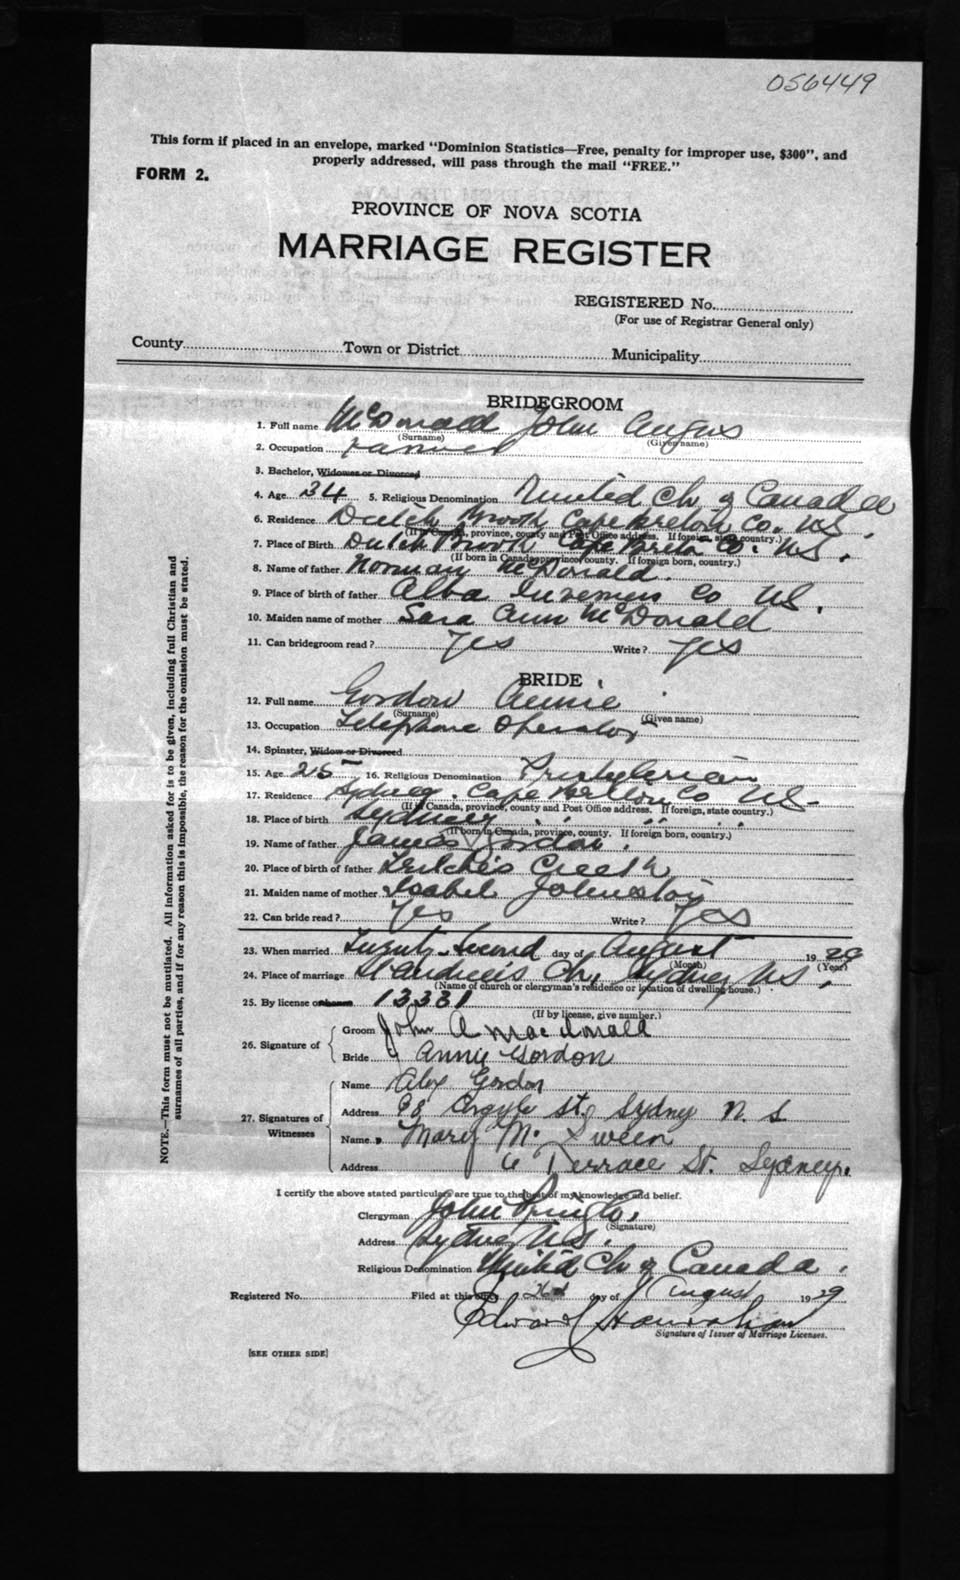 056449
This form if placed in an envelope, marked "Dominion Statistics—Free, penalty for improper use, $300", and
properly addressed, will pass through the mail "FREE."
FORM 2.
PROVINCE OF NOVA SCOTIA
MARRIAGE REGISTER
REGISTERED No.
(For use of Registrar General only)
County Town or District Municipality
BRIDEGROOM
1. Full name McDonald John Angus
(Surname) (Given name)
2. Occupation Farmer
3. Bachelor, Widower or Divorced
4. Age 34 5. Religious Denomination United Ch of Canada
6. Residence Dutch Brook Cape Breton Co. NS.
(If in Canada, province, county and Post Office address. If foreign, state country.)
7. Place of Birth Dutch Brook Cape Breton Co. NS.
(If born in Canada, province, county. If foreign born, country.)
8. Name of father Norman McDonald.
9. Place of birth of father Alba Inverness Co NS.
10. Maiden name of mother Sara Ann McDonald
11. Can bridegroom read? Yes Write? Yes
BRIDE
12. Full name Gordon Annie
(Surname) (Given name)
13. Occupation Telephone Operator
14. Spinster, Widow or Divorced
15. Age 25 16. Religious Denomination Presbyterian
17. Residence Sydney. Cape Breton Co NS
(If in Canada, province, county and Post Office address. If foreign, state country.)
18. Place of birth Sydney " " "
(If born in Canada, province, county. If foreign born, country.)
19. Name of father James Gordon.
20. Place of birth of father Leitches Creek
21. Maiden name of mother Isabel Johnston
22. Can bride read? Yes Write? Yes
23. When married Twenty-Second day of August 1929
(Month) (Year)
24. Place of marriage St Andrews Ch, Sydney NS.
(Name of church or clergyman's residence or location of dwelling house.)
25. By license or banns 13331
(If by license, give number.)
26. Signature of
Groom John A MacDonald
Bride Annie Gordon
27. Signatures of Witnesses
Name Alex Gordon
Address 98 Argyle St. Sydney N.S
Name Mary M. Sween
Address 6 Terrace St. Sydney.
I certify the above stated particulars are true to the best of my knowledge and belief.
Clergyman John
(Signature)
Address Sydney NS.
Religious Denomination United Ch of Canada.
Registered No. Filed at this office day of August 1929
Edward
Signature of Issuer of Marriage Licenses.
[SEE OTHER SIDE]
NOTE.—This form must not be mutilated. All information asked for is to be given, including full Christian and
surnames of all parties, and if for any reason this is impossible, the reason for the omission must be stated.